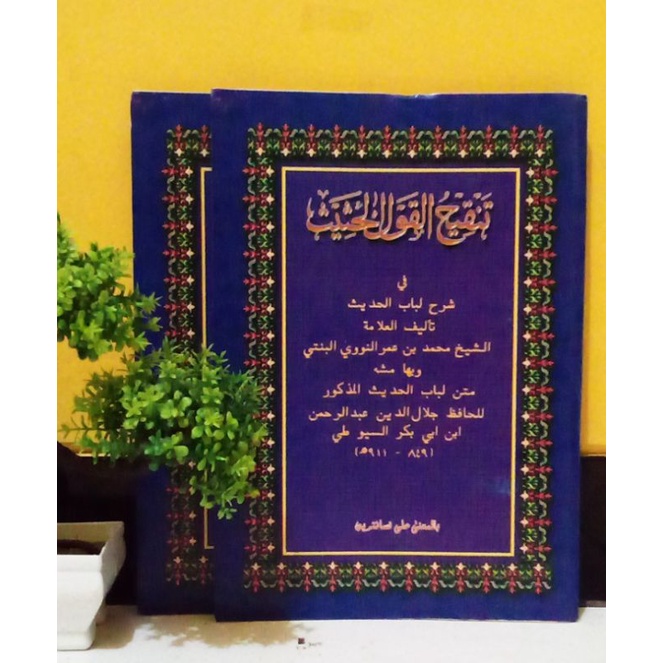 تنقيح القول الحثيث
في
شرح لباب الحديث
تاليف العلامة
الشيخ محمد بن عمر النووي البنتي
وبها مشه
متن لباب الحديث المذكور
للحافظ جلال الدين عبد الرحمن
ابن ابي بكر السيو طي
(٨٤٩ - ٩١١ھ)
بالمعنى على فسانترين